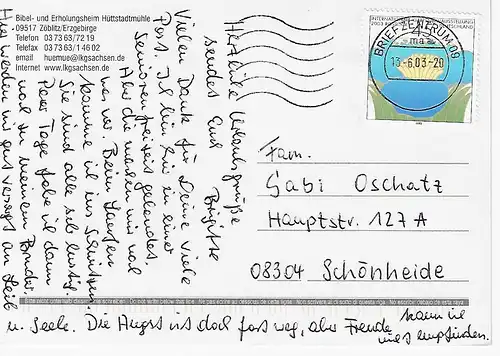 Bibel- und Erholungsheim Hüttstadtmühle
09517 Zöblitz/Erzgebirge
Telefon 03 73 63/72 19
Telefax 03 73 63/1 46 02
email huemue@lkgsachsen.de
Internet www.lkgsachsen.de
BRIEFZENTRUM 09
13.-6.03-20
Herzliche Urlaubsgrüße
sendet Euch Brigitte
Vielen Dank für Deine viele
Post. Ich bin hier in einer
Senioren freizeit gelandet.
Aber die machen mir
was vor. Beim Laufen
komme ich ins Schwitzen.
Sie sind alle sehr lustig.
Paar Tage fahre ich dann
noch zu meinem Bruder.
Hier werden wir gut versorgt an Leib
u. Seele. Die Angst ist doch fast weg, aber Freude kann ich
nicht empfinden.
Fam.
Gabi Oschatz
Hauptstr. 127 A
08304 Schönheide
Bitte nicht unterhalb dieser Zeile schreiben. Do not write below this line. Ne pas écrire au dessous de cette ligne. Non scrivere al di sotto di questa riga. No escribir debajo de esta raya.